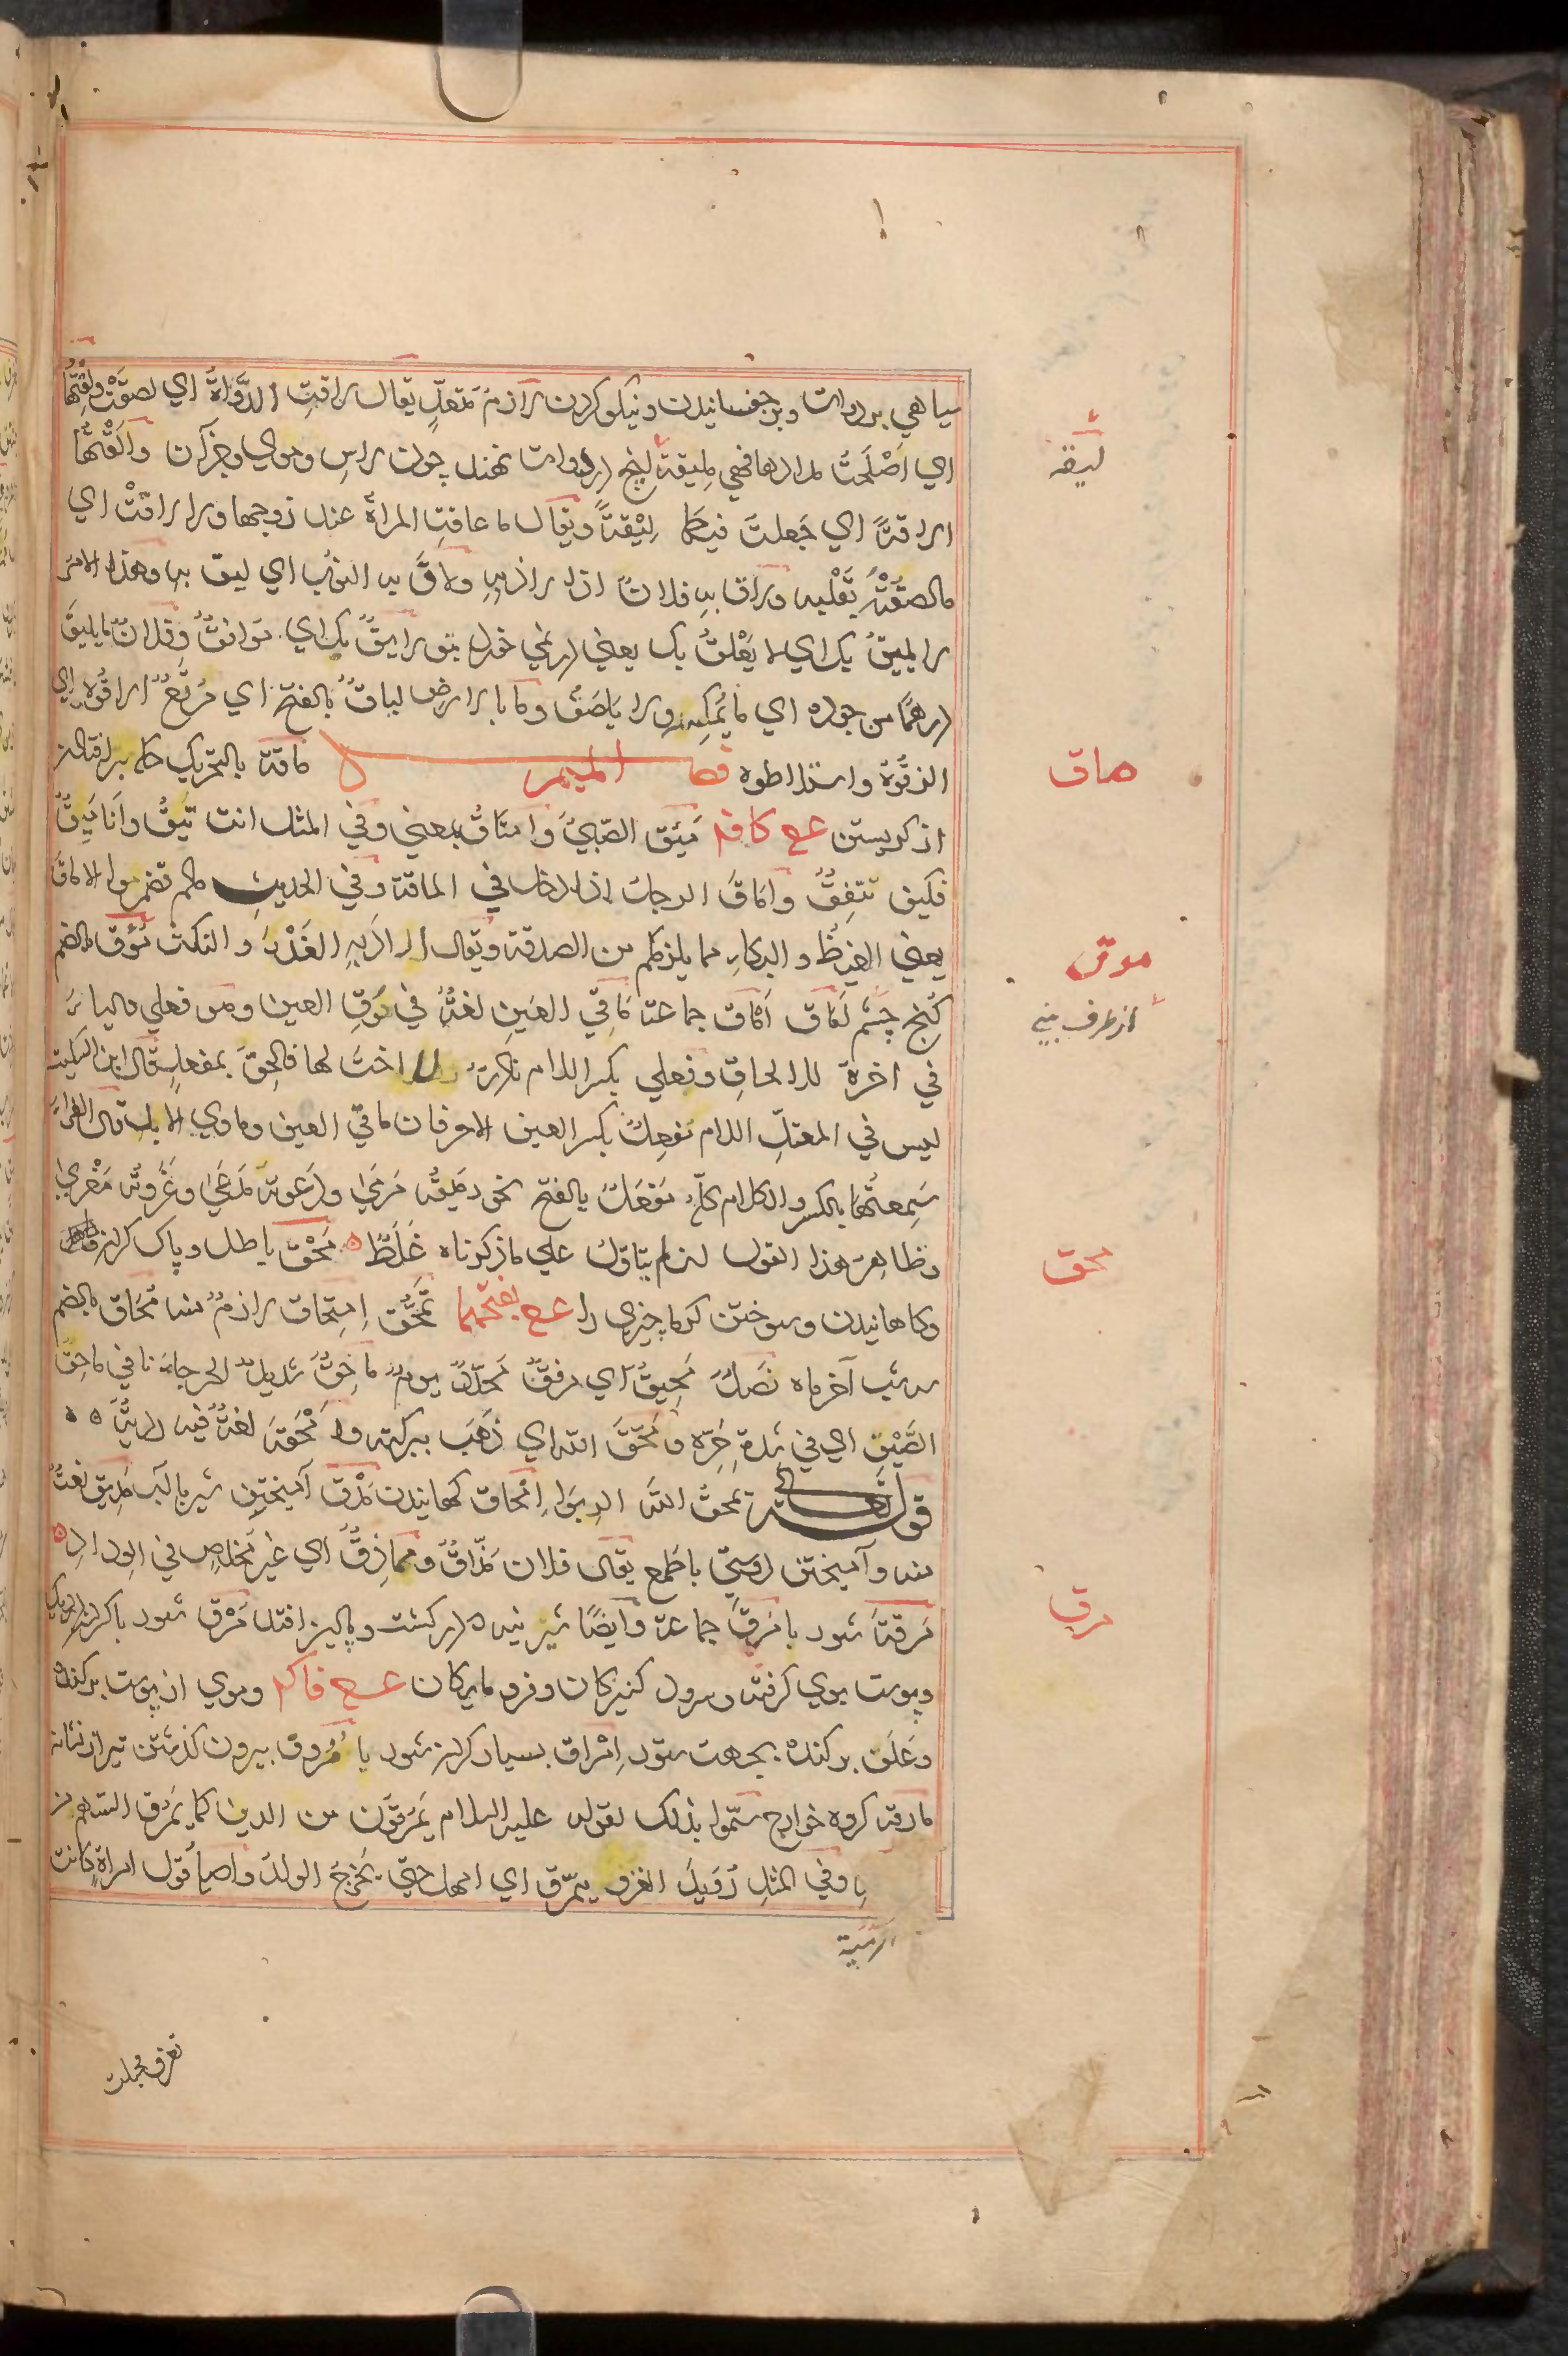 سياهي بر دوات وبرچفسانيدن ونيكو كردن لازم متعدّ يقال لاقتِ الدَّواةُ اي لصقَتْ ولِقْتُها
اي اَصْلَحتُ مدادها فهي مليقةٌ ليقه در دوات نهند چون لاس وموي وجز آن واَلَقْتُها
الاقةً اي جَعلتُ فيها لِيْقةً ويقال ما عاقتِ المراةُ عند زوجها ولا لاقتْ اي
ما لصقَتْ بقَلْبه ولاق به فلانٌ اذا لاذ به ولاقَ به الثوبُ اي لبق به وهذا الامر
لا يليقُ بك اي لا يَعْلقُ بك يعني درنمي خورد بتو
درهما من جوده اي ما يُمسكه ولا يلصق وما بالارض لياقٌ بالفتح اي مَرتعٌ
فصل الميم ماقة بالتحريك
از كريستن ع ح كافه مَئِق الصّبيُّ وامتأقَ بمعني وفي المثل انت تَئِقٌ وانا مَئِقٌ
فكيف نتفِقُ واماقَ الرجلُ اذا دخل في الماقة وفي الحديث مالم تضمروا الاماق
يعني الغيظ والبكاء مما يلزمكم من الصدقة ويقال اراد به الغَدْرَ والنكث مُؤق بالضم
كُنج چشم آماق اَمْآق جماعة مَاقي العَينِ لغةٌ في مُوقِ العين وهو فعلي والياء
في اخره للالحاق وفعلي بكسر اللام نادرٌ لا اختَ لها فالحِقَ بمفعِل قال ابن السكيت
ليس في المعتلّ اللام مفعِلٌ بكسر العين الا حرفان ماقي العين وماوي الابل قال الفراء
سَمِعتُهما بالكسر والكلام كلّه مَفعَلٌ بالفتح نحو رميتُه مَرمًي ودعوته مَدعًي وغزوته مَغزًي
وظاهر هذا القول ان لم يتاوّل علي ما ذكرناه غَلَطٌ مَحْق باطل وپاك كردن
وكاهانيدن وسوختن كرما چيزي را ع ح بفتحهما تَمَحُّق اِمتِحاق لازمٌ منه مُحاق بالضم
سه شب آخر ماه نَصلٌ مَحِيقٌ اي مرقّقٌ مُحدَّدٌ يومٌ ماحِقٌ شديد الحر جاءنا في ماحِق
الصَّيْفِ اي في شدة حَرّه ومَحَقَه الله اي ذهَبَ ببركته واَمْحَقَه لغةٌ فيه رديّةٌ
قوله تعالي يمحقُ الله الربوا اِمْحاق كاهانيدن مَذْق آميختن شير با آب مَذيق نعتٌ
منه وآميختن دوستي با طمع يقال فلان مَذّاقٌ ومُماذِقٌ اي غيرُ مُخلصٍ في الوداد
مَرَقَة شوربا مَرَق جماعة وايضًا در كشت وپاليز افتد مَرْق شوربا
وپوست بوي كرفته وسرود كنيزكان وفرومايكان ع ح فاكه وموي از پوست بركندن
وعَلَف بركندن بجهت ستور اِمْراق بسيار كردن شوربا مُرُوق بيرون كذشتن تير از نشانه
مارقة كروه خوارج سُمّوا بذلك لقوله عليه السلام يَمرُقون من الدين كما يَمرُق السّهم من
وفي المثل رُوَيدَ الغزو ينمرق اي امهل حتي يَخرجَ الولد واصله قول امراةٍ كانت
الرَّمِيّة
تغزو فحبلت
ليقه
ماق
موق
از طرف بيني
محق
مرق